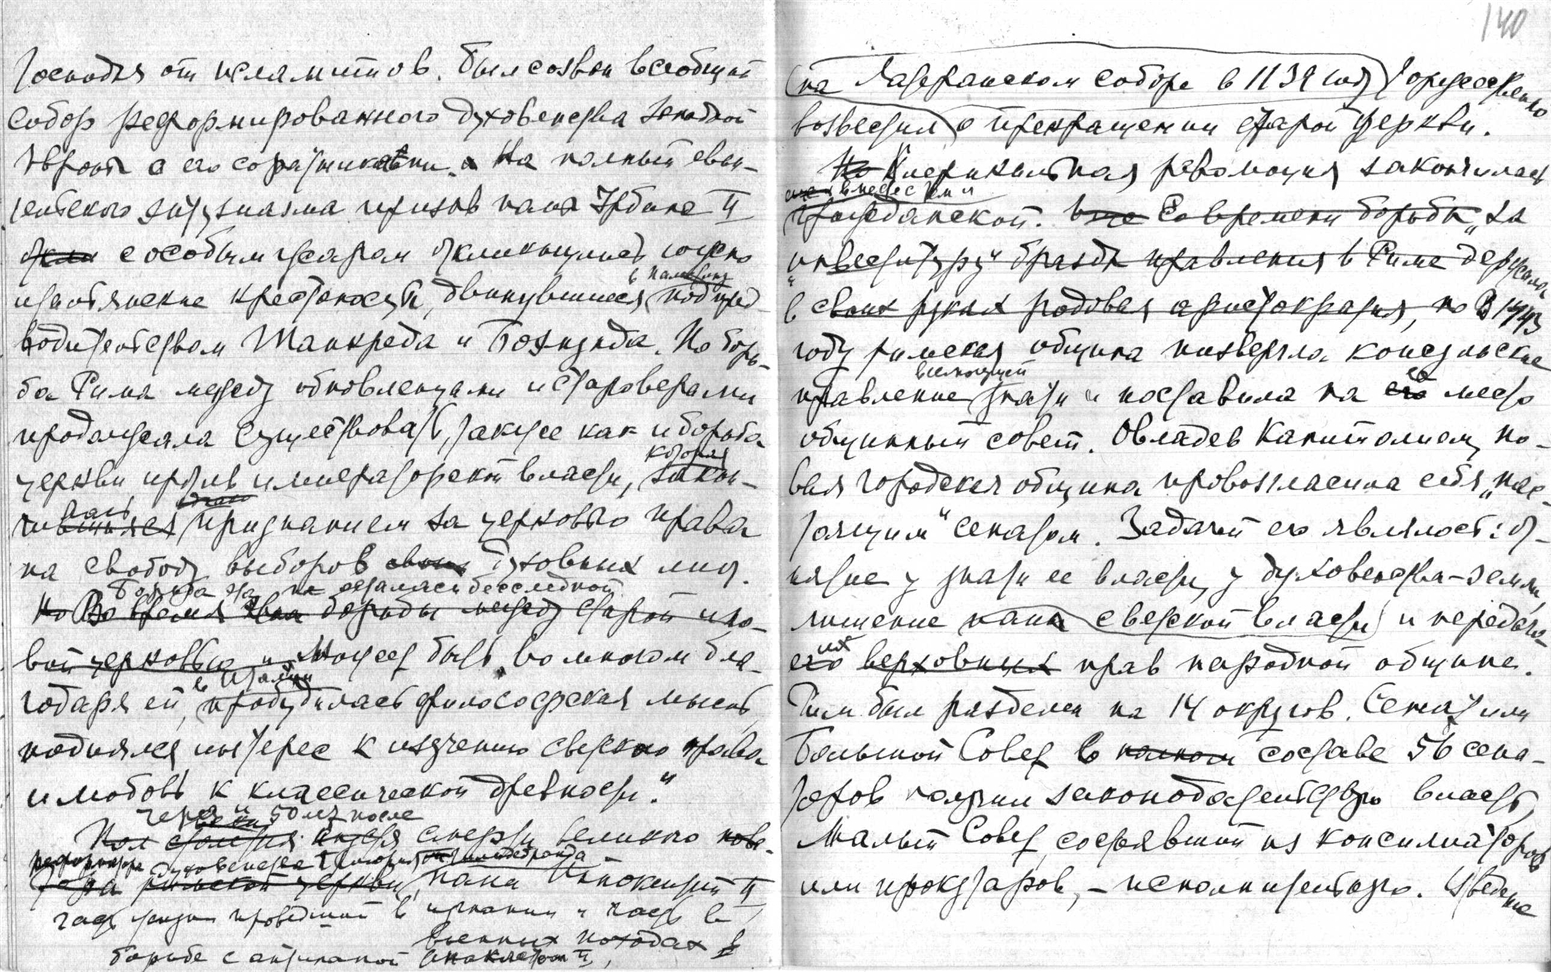 Господня от исламитов. Был созван всеобщий
собор реформированного духовенства Западной
Европы с его соратниками. На полный еван-
гельского энтузиазма призыв папы Урбана II
с особым жаром откликнулись южно
итальянские крестоносцы, двинувшиеся в Палестину под пред-
водительством Танкреда и Боэмунда. Но борь-
ба Рима между обновленцами и староверами
продолжала существовать, также как и борьба
церкви против императорской власти, которая закон-
чилась признанием за церковью права
на свободу выборов своих духовных лиц.
Борьба эта не осталась бесследной
Но Во время борьбы между старой и но-
вой церковью и Может быть во многом бла-
годаря ей, в Италии пробудилась философская мысль,
поднялся интерес к изучению светского права
и любовь к классической древности."
через 50 лет после
Пол столетия спустя смерти великого
реформатора духовенства Григория Гильдебранда
церкви, папа Иннокентий II
часть жизни проведший в изгнании и часть в
военных походах в
борьбе с антипапой Анаклетом II,
140
(на Латеранском соборе в 1139 году) торжественно
возвестил о прекращении старой церкви.
Но Клерикальная революция закончилась
гражданской. Со времени борьбы „за
инвеституру" бразды правления в Риме держала
в своих руках родовая аристократия, но В 1143
году римская община низвергла консульское
правление знати и поставила на его место
общинный совет. Овладев Капитолием, но-
вая городская община провозгласила себя „нас-
тоящим" сенатом. Задачей его являлось: от-
нятие у знати ее власти, у духовенства – земли,
лишение папы светской власти и передача
его верховных прав народной общине.
Рим был разделен на 14 округов. Сенат или
Большой Совет в полном составе 56 сена-
торов получил законодательную власть,
Малый Совет, состоявший из консилиаторов
или прокураторов, – исполнительную.